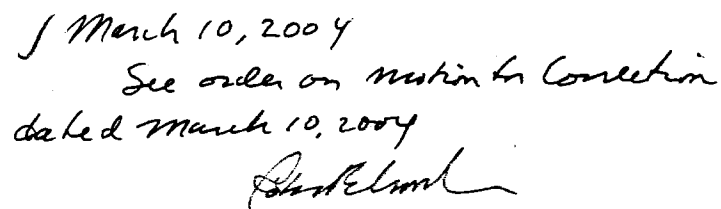 March 10, 2004
See order on motion for Correction
dated March 10, 2004